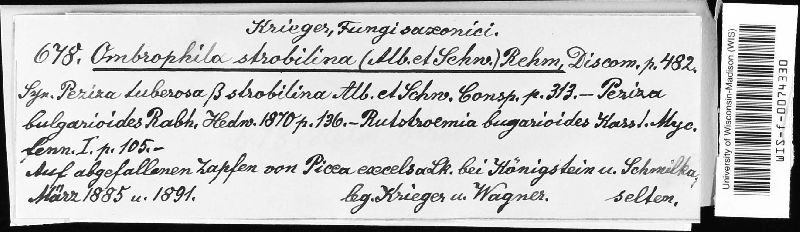 Krieger, Fungi saxonici.
678. Ombrophila strobilina (Alb. et Schw.) Rehm, Discom. p. 482.
Syn. Peziza tuberosa β strobilina Alb. et Schw. Consp. p. 313. – Peziza
bulgarioides Rabh. Hedw. 1870 p. 136. – Rutstroemia bugarioides Karst. Myc.
fenn. I. p. 105. –
Auf abgefallenen Zapfen von Picea excelsa Lk. bei Königstein u. Schmilka,
März 1885 u. 1891. leg. Krieger u. Wagner. selten.
University of Wisconsin-Madison (WIS)
WIS-F-0074330